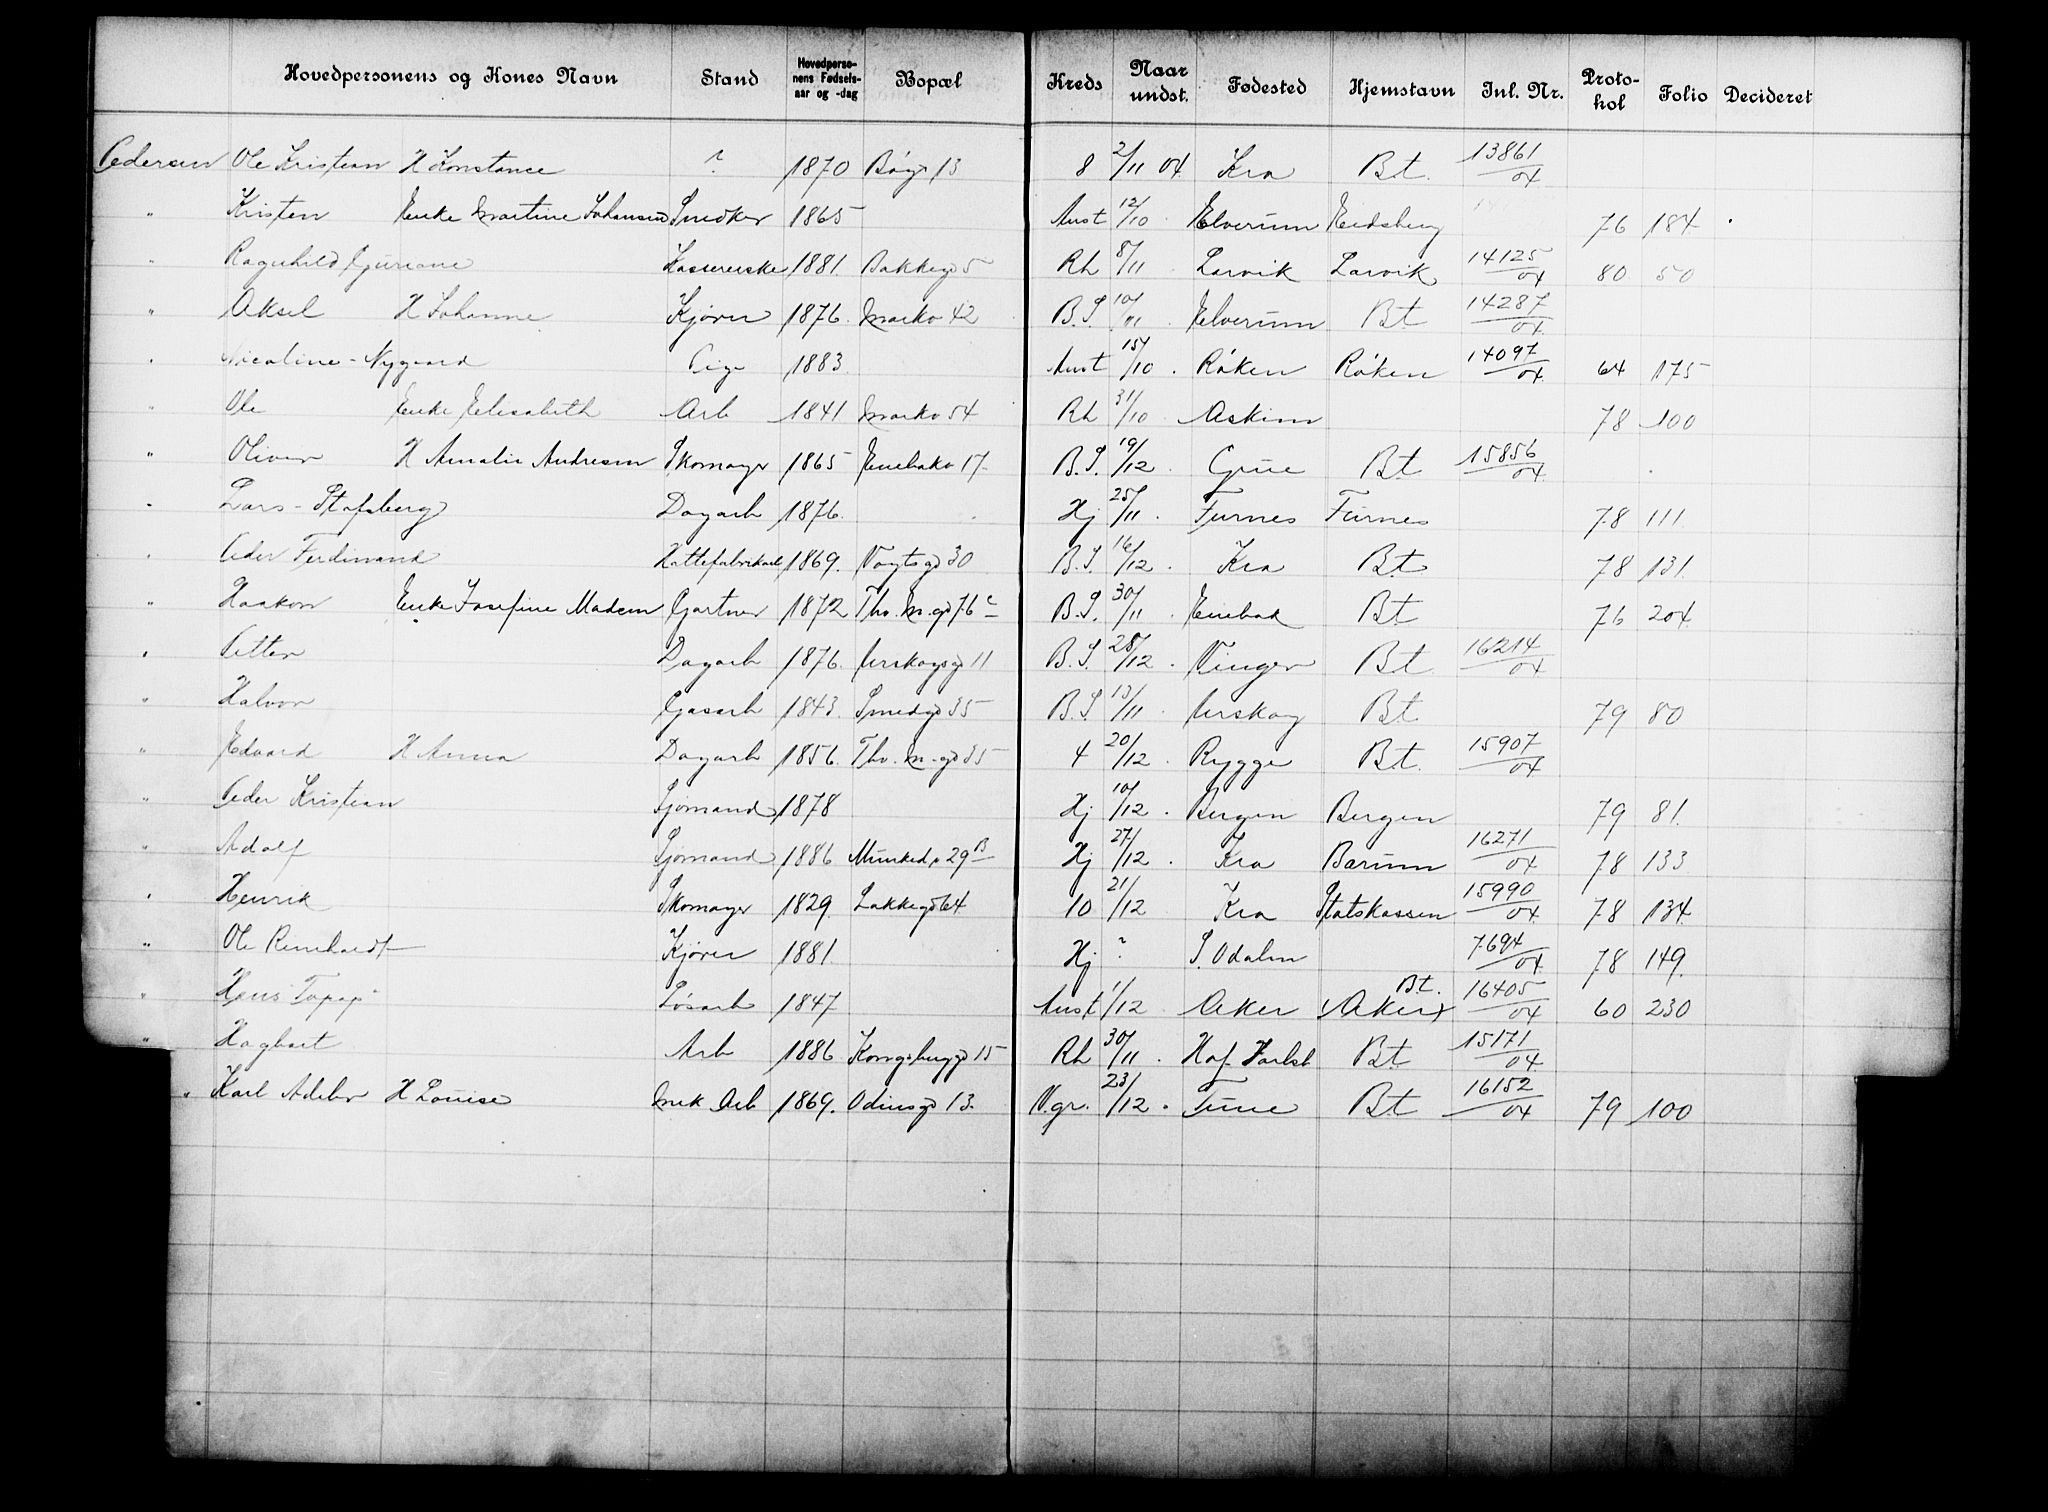 Hovedpersonens og Kones Navn Stand Hovedperso-nens Fødsels-aar og -dag Bopæl Kreds Naar undst. Fødested Hjemstavn Inl. Nr. Proto-kol Folio Decideret
Pedersen Ole Kristian H Konstance ? 1870 13 8 2/11 04 Kra Bt. 13861/04
" Kristen Enke Martine Johansen Snedker 1865 Aust 12/10 Elverum Eidsberg 76 184
" Ragnhild Gunane Kassererske 1881 Bakkegd 5 Rh 8/11 Larvik Larvik 14125/04 80 50
" Aksel H Johanne Kjører 1876 Markv 42 B.S. 10/11 Elverum Bt 14287/04
" Nicoline - Nygaard Pige 1883 Aust 15/10 Røken Røken 14097/04 64 175
" Ole Enke Elisabeth Arb 1841 Markv 54 Rh 31/10 Askim 78 100
" Oliver H Amalie Andresen Skomager 1865 Enebakv 17 B.S. 19/12 Grue Bt 15856/04
" Lars - Stafsberg Dagarb 1876 Hj 25/11 Furnes Furnes 78 111
" Peder Ferdinand Hattefabrikarb 1869. Vogtsgd 30 B.S. 16/12 Kra Bt 78 131
" Haakon Enke Josefine Madsen Gartner 1872 Thv. M-gd 76 c B.S. 30/11 Enebak Bt 76 204
" Petter Dagarb 1876. Urskogsgd 11 B.S. 28/12 Vinger Bt 16214/04
" Halvor Gasarb 1843 Smedgd 35 B.S. 13/11 Urskog Bt 79 80
" Edvard H Anna Dagarb 1856. Thv. M-gd 35 4 20/12 Rygge Bt. 15907/04
" Peder Kristian Sjømand 1878 Hj 10/12 Bergen Bergen 79 81
" Adolf Sjømand 1886 Munked. 29 B Hj 27/12 Kra Barum 16271/04 78 133
" Henrik Skomager 1829 Lakkegd 64 10 21/12 Kra Statskassen 15990/04 78 134
" Ole Reinhardt Kjører 1881 Hj ? S. Odalen 7694/04 78 149.
" Hans Løsarb 1847 Aust 1/12 Aker Bt. (Aker) 16405/04 60 230
" Hagbart Arb 1886 Kongsbergg 15 Rh 30/11 Hof Jarlsb Bt 15171/04
" Karl Adeler H Louise Mek Arb 1869. Odinsgd 13. V.gr. 23/12 Tune Bt 16152/04 79 100